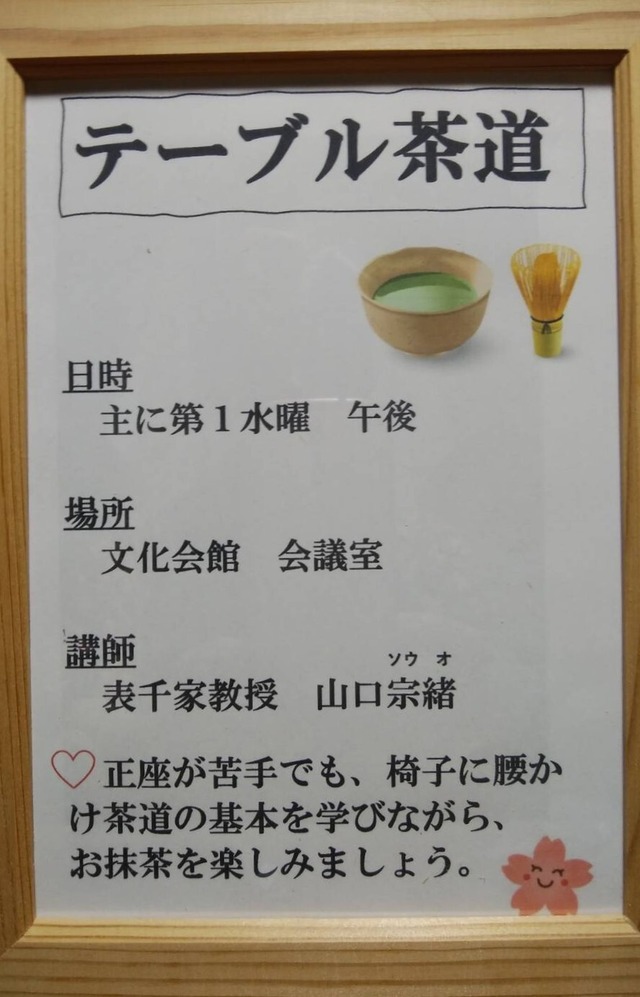 テーブル茶道
日時
主に第１水曜　午後
場所
文化会館　会議室
講師
ソウ　オ
表千家教授　山口宗緒
♡正座が苦手でも、椅子に腰か
け茶道の基本を学びながら、
お抹茶を楽しみましょう。